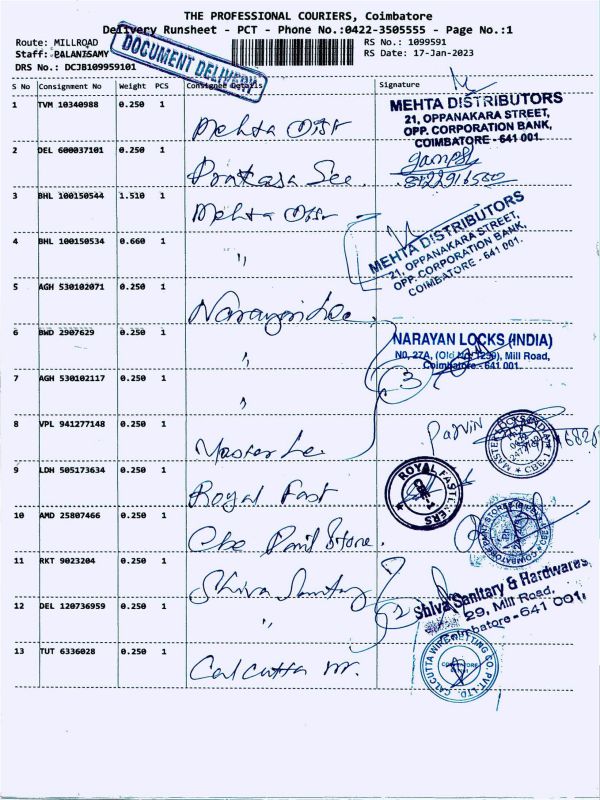 THE PROFESSIONAL COURIERS, Coimbatore
Delivery Runsheet - PCT - Phone No.:0422-3505555 - Page No.:1
Route: MILLROAD
RS No.: 1099591
Staff: PALANISAMY
RS Date: 17-Jan-2023
DRS No.: DCJB109959101
DOCUMENT DELIVERY
S No Consignment No Weight PCS Consignee Details Signature
1 TVM 10340988 0.250 1 Mehta Distr
MEHTA DISTRIBUTORS
21, OPPANAKARA STREET,
OPP. CORPORATION BANK,
COIMBATORE - 641 001.
2 DEL 600037101 0.250 1 Prakasa See.
3 BHL 100150544 1.510 1 Mehta Distr
4 BHL 100150534 0.660 1 "
MEHTA DISTRIBUTORS
21, OPPANAKARA STREET,
OPP. CORPORATION BANK,
COIMBATORE - 641 001.
5 AGH 530102071 0.250 1 Narayan Loc
6 BWD 2907629 0.250 1 "
NARAYAN LOCKS (INDIA)
NO, 27A, (Old No. 1250), Mill Road,
Coimbatore - 641 001.
7 AGH 530102117 0.250 1 "
3
8 VPL 941277148 0.250 1 Master Lo
Parvin
MASTER LOCKS INDIA
CBE
9 LDH 505173634 0.250 1 Royal Fast
ROYAL FASTENERS
CBE-1
10 AMD 25807466 0.250 1 Cbe Paint Store.
11 RKT 9023204 0.250 1 Shiva Sanitary
12 DEL 120736959 0.250 1 "
2
Shiva Sanitary & Hardwares
29, Mill Road,
Coimbatore - 641 001.
13 TUT 6336028 0.250 1 Calcutta Wr.
CALCUTTA WIRE NETTING CO. PVT. LTD.